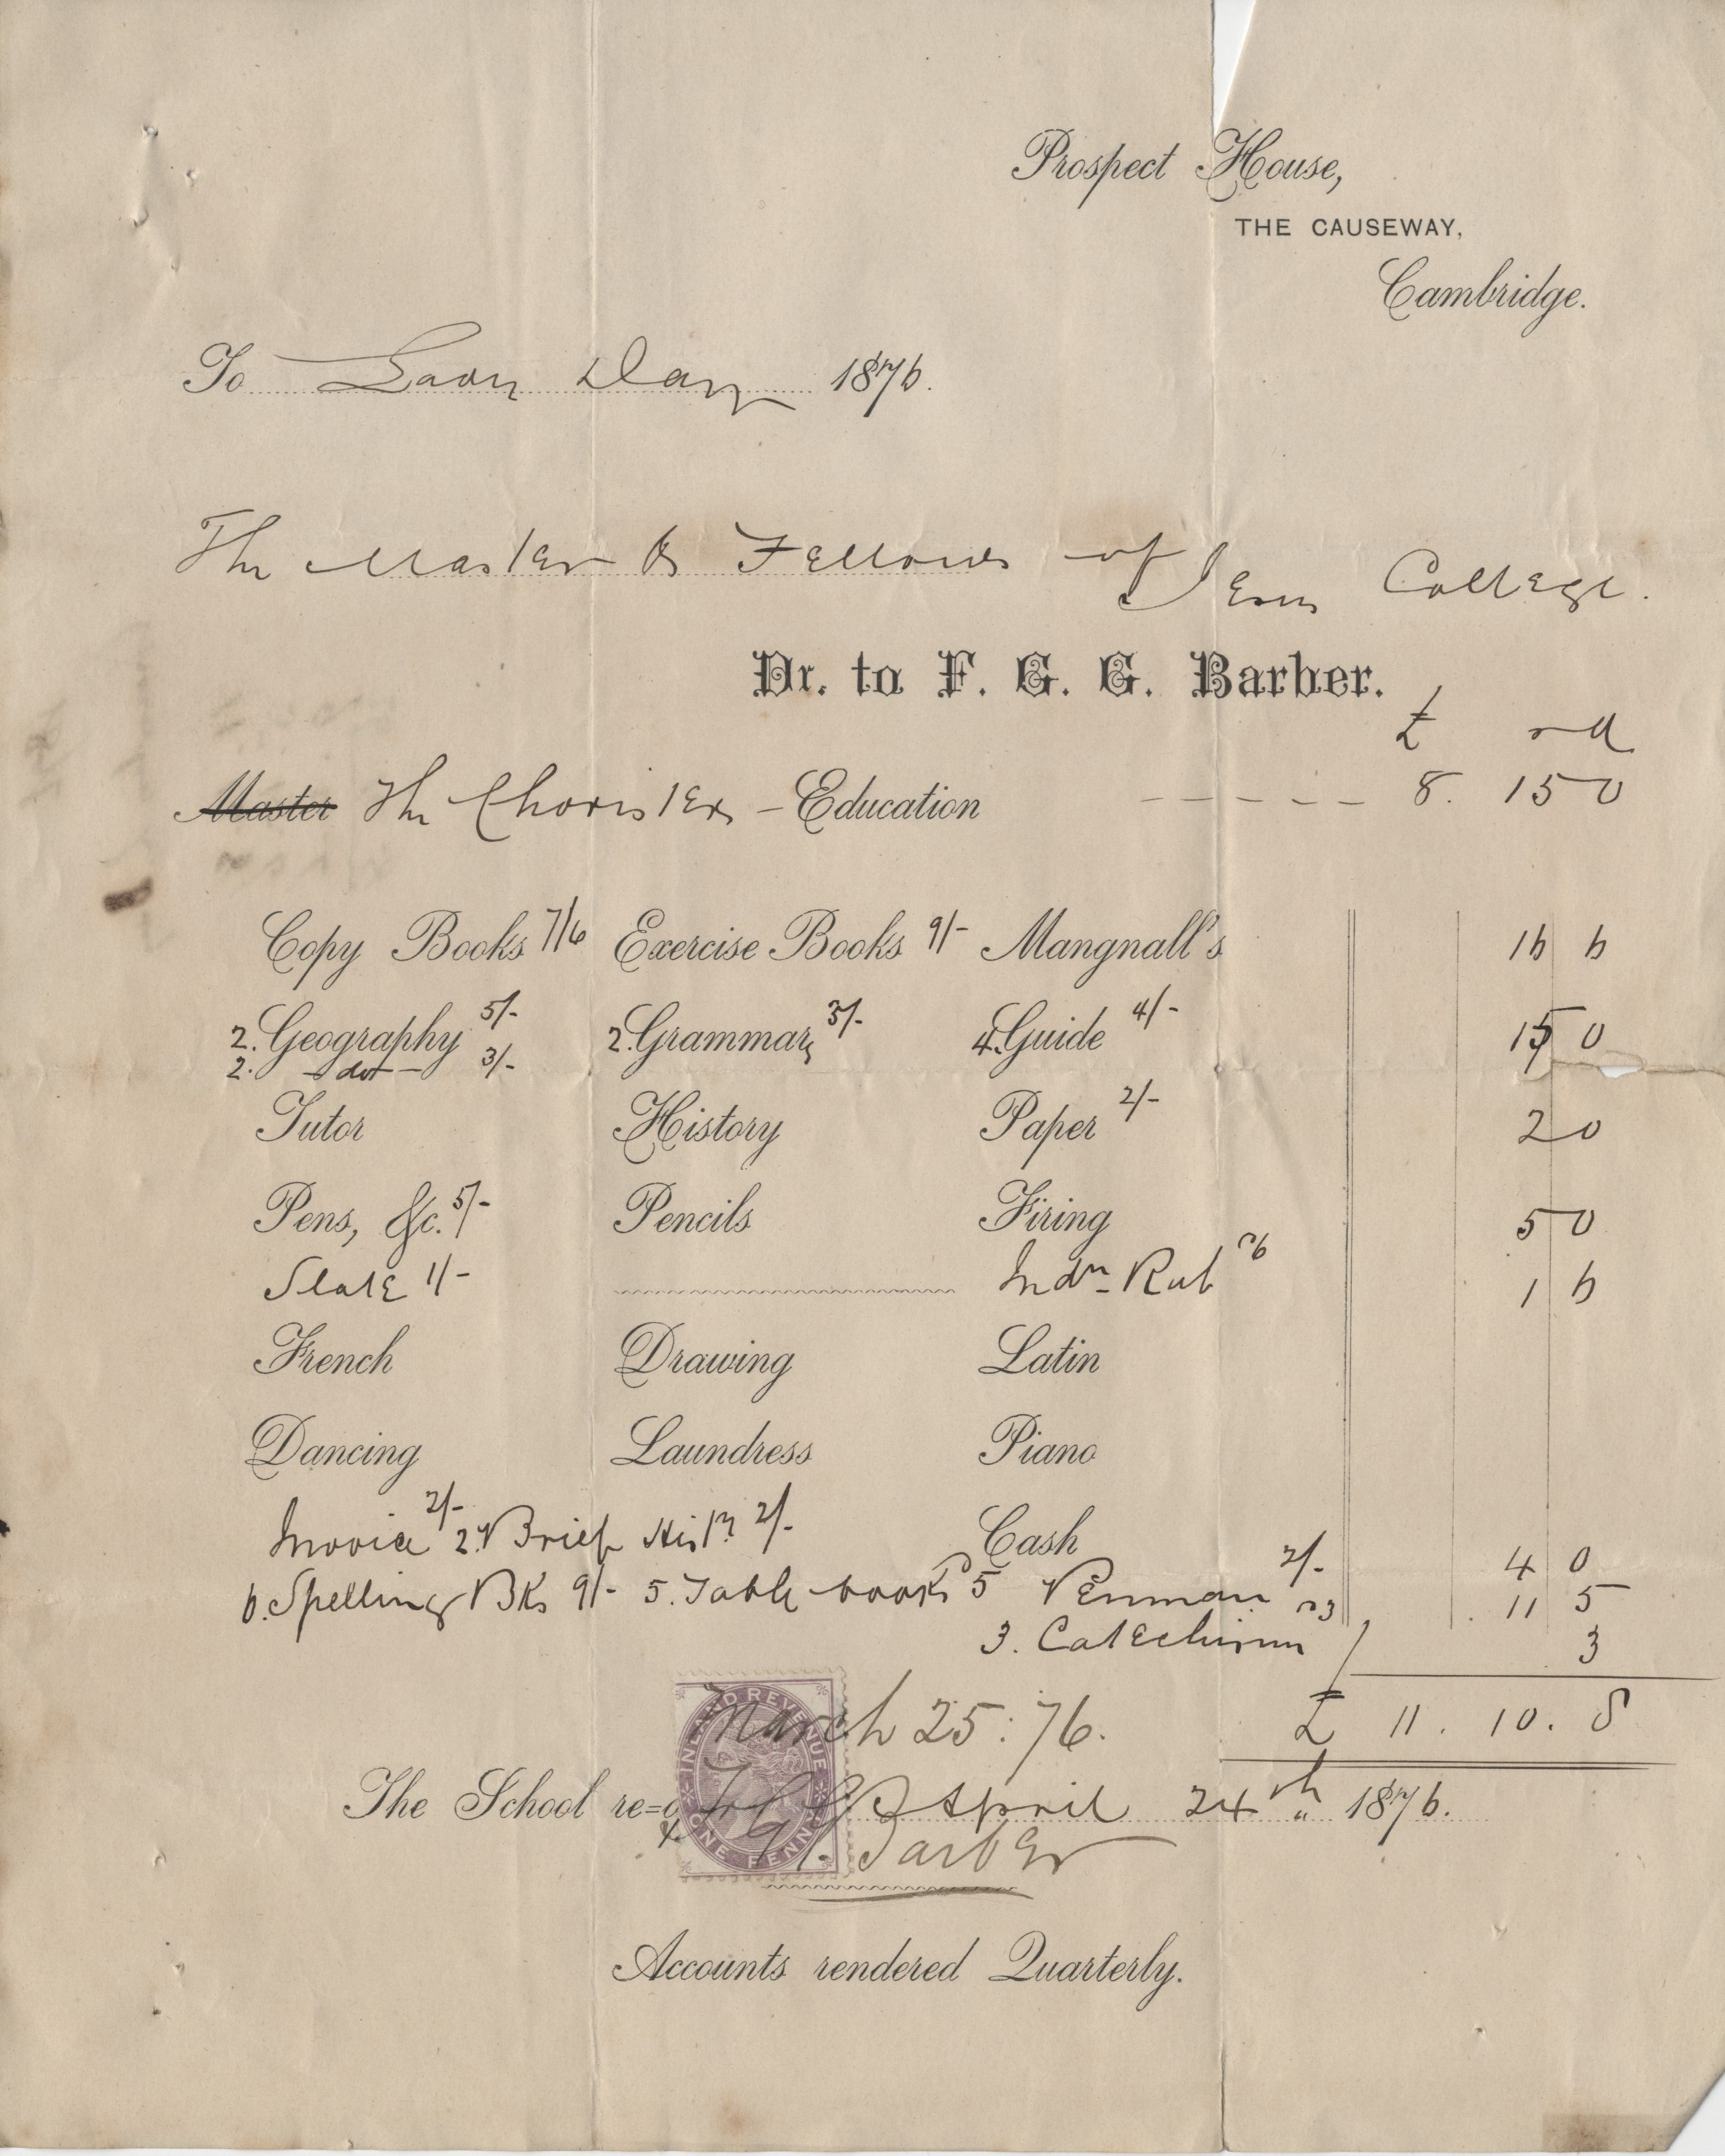 Prospect House,
THE CAUSEWAY,
Cambridge.
To Lady Day 1876.
The Master & Fellows of Jesus College.
Dr. to F. G. G. Barber.
£ s d
Master The Choristers – Education - - - - - 8. 15 0
Copy Books 7/6 Exercise Books 9/- Mangnall's 16 6
2. Geography 5/- 2. Grammars 3/- 4. Guide 4/- 15 0
2. – do – 3/-
Tutor History Paper 2/- 2 0
Pens, &c. 5/- Pencils Firing 5 0
Slate 1/- Indn Rub 6 1 6
French Drawing Latin
Dancing Laundress Piano
Invoice 2/- 2. Brief Histy 2/- Cash 4 0
6. Spelling Bks 9/- 5. Table books 5 Penman 2/- 11 5
3. Catechisms 3 3
£ 11. 10. 8
March 25: 76.
INLAND REVENUE
ONE PENNY
The School re= April 24th 1876.
F. G. G. Barber
Accounts rendered Quarterly.